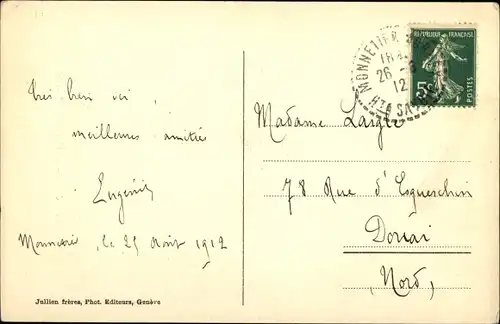 très bien ici,
meilleures amitiés
Eugénie
le 25 Août 1912
Jullien frères, Phot. Editeurs, Genève
RÉPUBLIQUE FRANÇAISE
5
POSTES
MONNETIER
26 -8
12
Hte SAVOIE
Madame Laigle
78 Rue d'Esquerchin
Douai
(Nord)